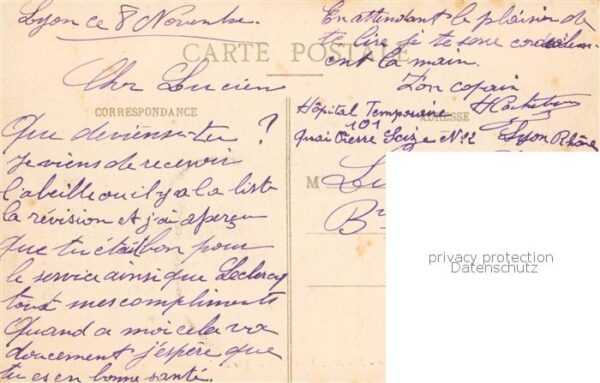 Lyon ce 8 Novembre.
CARTE POSTALE
Cher Lucien
CORRESPONDANCE
Que deviens-tu ?
Je viens de recevoir
l'abeille ou il y a la liste
la révision et j'ai aperçu
que tu étais bon pour
le service ainsi que Leclercq
tous mes compliments
Quand a moi cela va
doucement j'espère que
tu es en bonne santé.
En attendant le plaisir de
te lire je te serre cordialem-
ent la main.
Ton copain
Hôpital Temporaire
101
ADRESSE
quai Pierre Scize N° 2
Lyon Rhône
M
privacy protection
Datenschutz